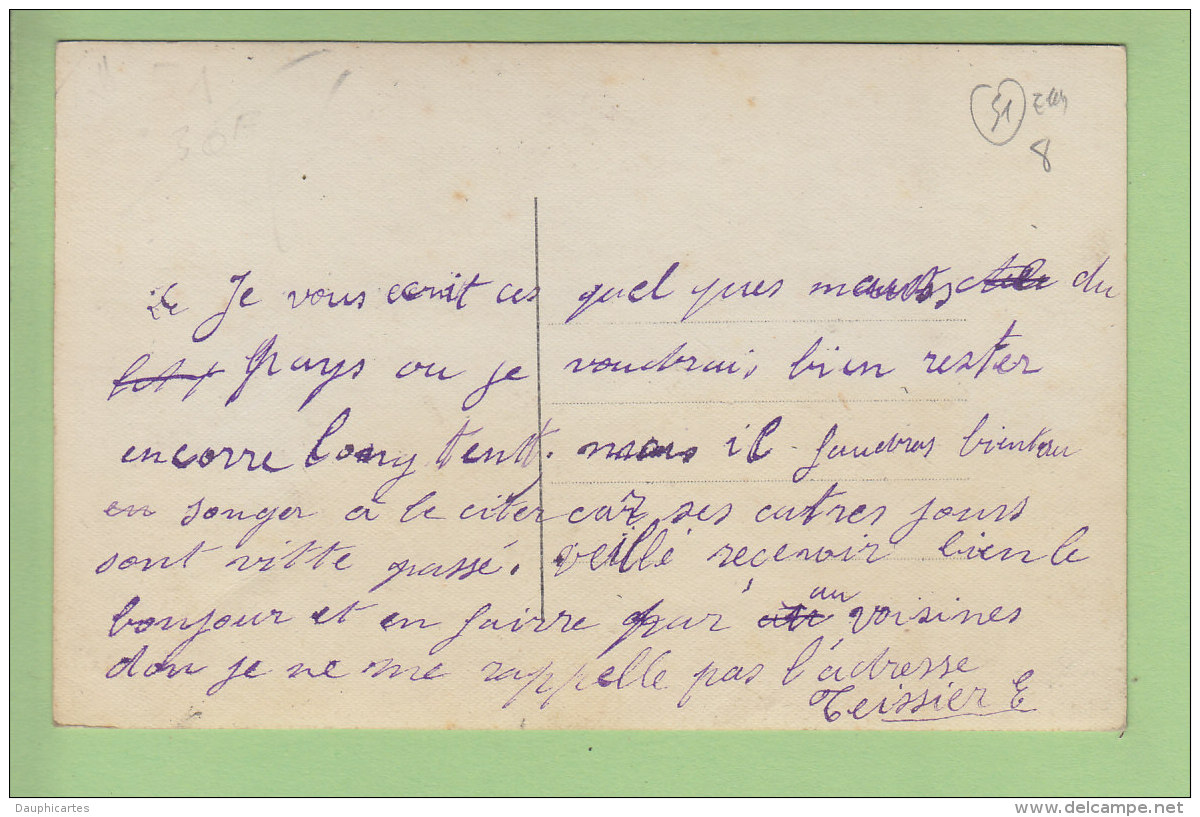 51
8
30F
Je vous ecrit ces quel ques mauts du
pays ou je voudrais bien rester
encorre long tent. mais il faudras bientau
en songer a le citer car ses autres jours
sont vitte passé. veillé recevoir bien le
bonjour et en fairre par au voisines
don je ne me rappelle pas l'adresse
Teissier E
Dauphicartes
delcampe.net